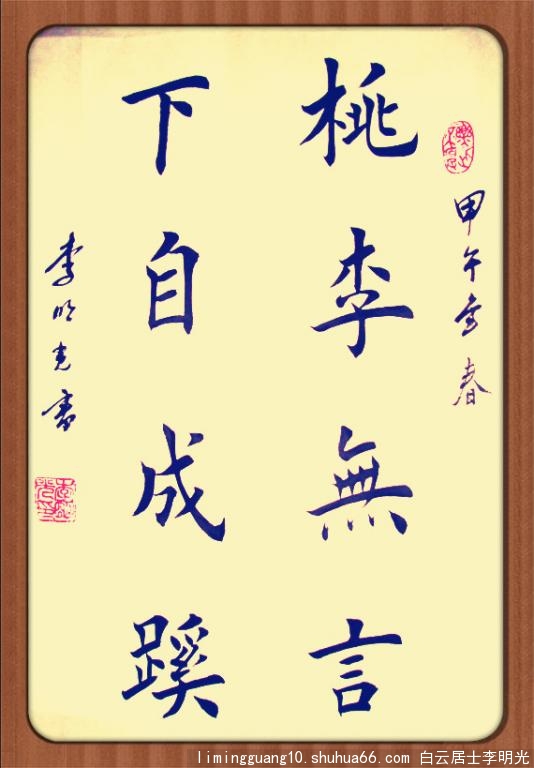 甲午春
桃李無言
下自成蹊
李明光書
limingguang10.shuhua66.com 白云居士李明光